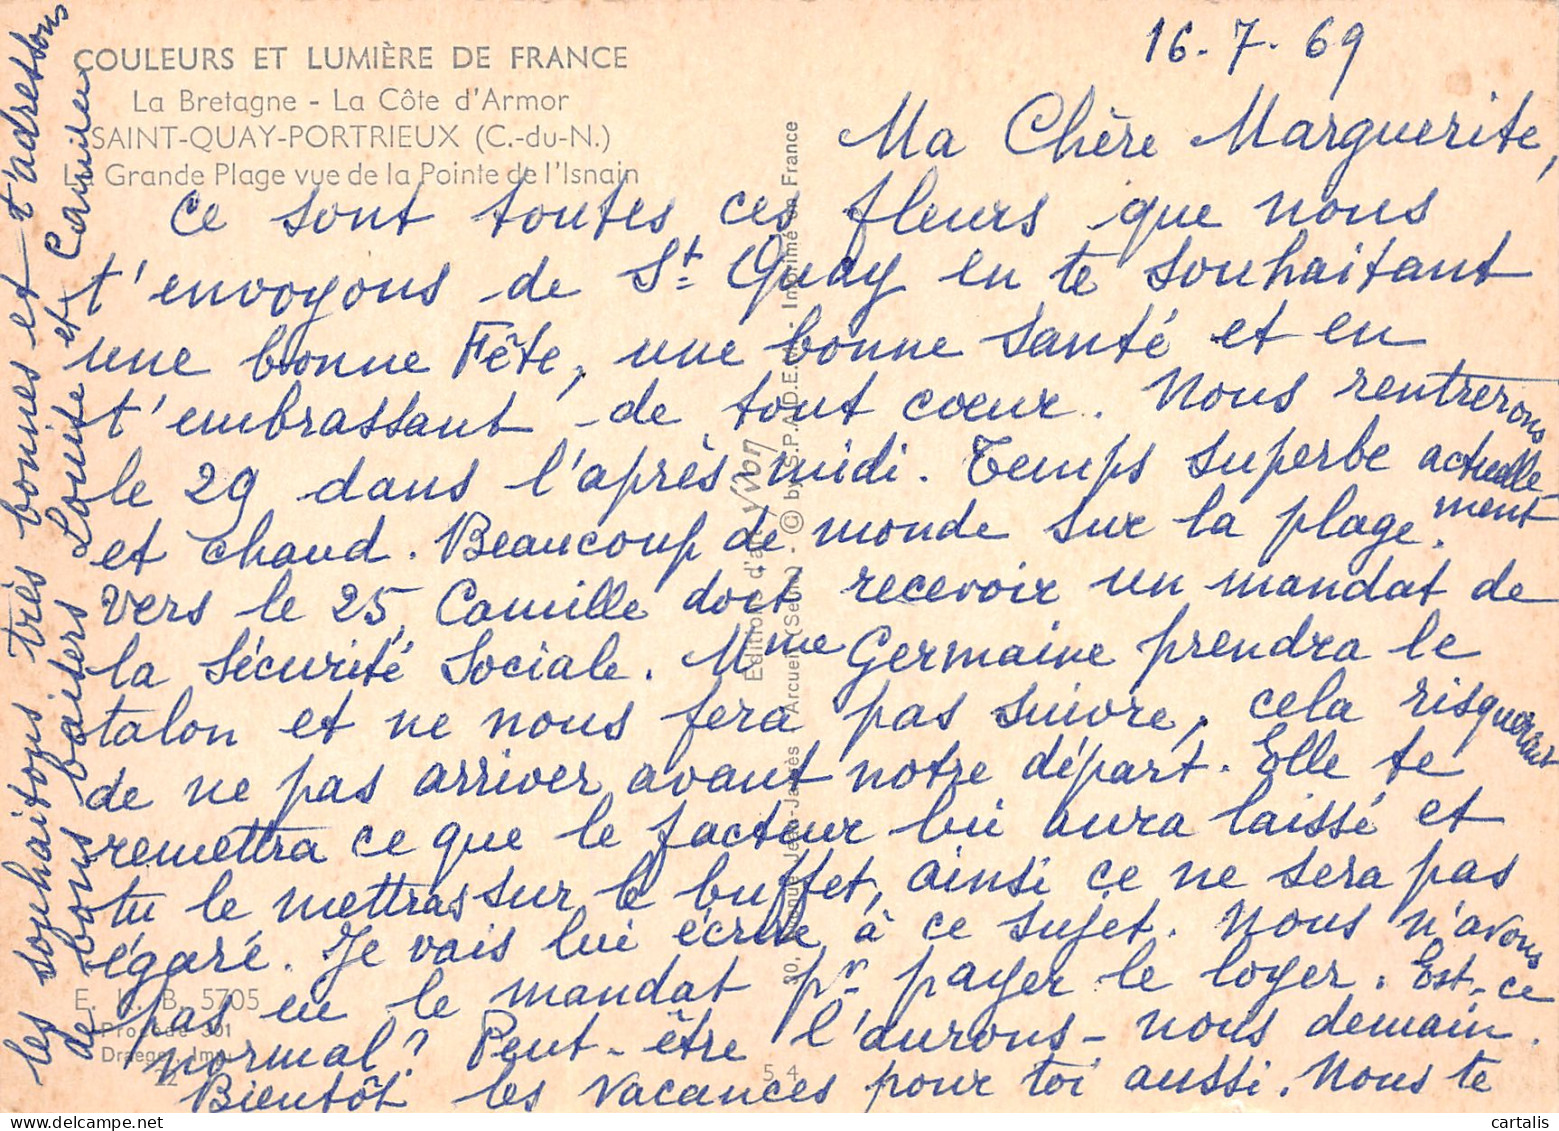 COULEURS ET LUMIÈRE DE FRANCE
La Bretagne - La Côte d'Armor
SAINT-QUAY-PORTRIEUX (C.-du-N.)
La Grande Plage vue de la Pointe de l'Isnain
16-7-69
Ma Chère Marguerite,
Ce sont toutes ces fleurs que nous
t'envoyons de St Quay en te souhaitant
une bonne Fête, une bonne santé et en
t'embrassant de tout coeur. Nous rentrerons
le 29 dans l'après-midi. Temps superbe actuelle-
ment
et chaud. Beaucoup de monde sur la plage.
Vers le 25, Camille doit recevoir un mandat de
la Sécurité Sociale. Mme Germaine prendra le
talon et ne nous fera pas suivre, cela risquerait
de ne pas arriver avant notre départ. Elle te
remettra ce que le facteur lui aura laissé et
tu le mettras sur le buffet, ainsi ce ne sera pas
égaré. Je vais lui écrire à ce sujet. Nous n'avons
pas eu le mandat pr payer le loyer. Est-ce
normal? Peut-être l'aurons-nous demain.
Bientôt les vacances pour toi aussi. Nous te
les souhaitons très bonnes et t'adressons
de bons baisers Louise et Camille
Editions d'art yvon
, Arcueil (Seine) - © by S.P.A.D.E.M. - Imprimé en France
E. K. B. 5705
Procédé 301
Draeger, Imp.
22
5 4
cartalis